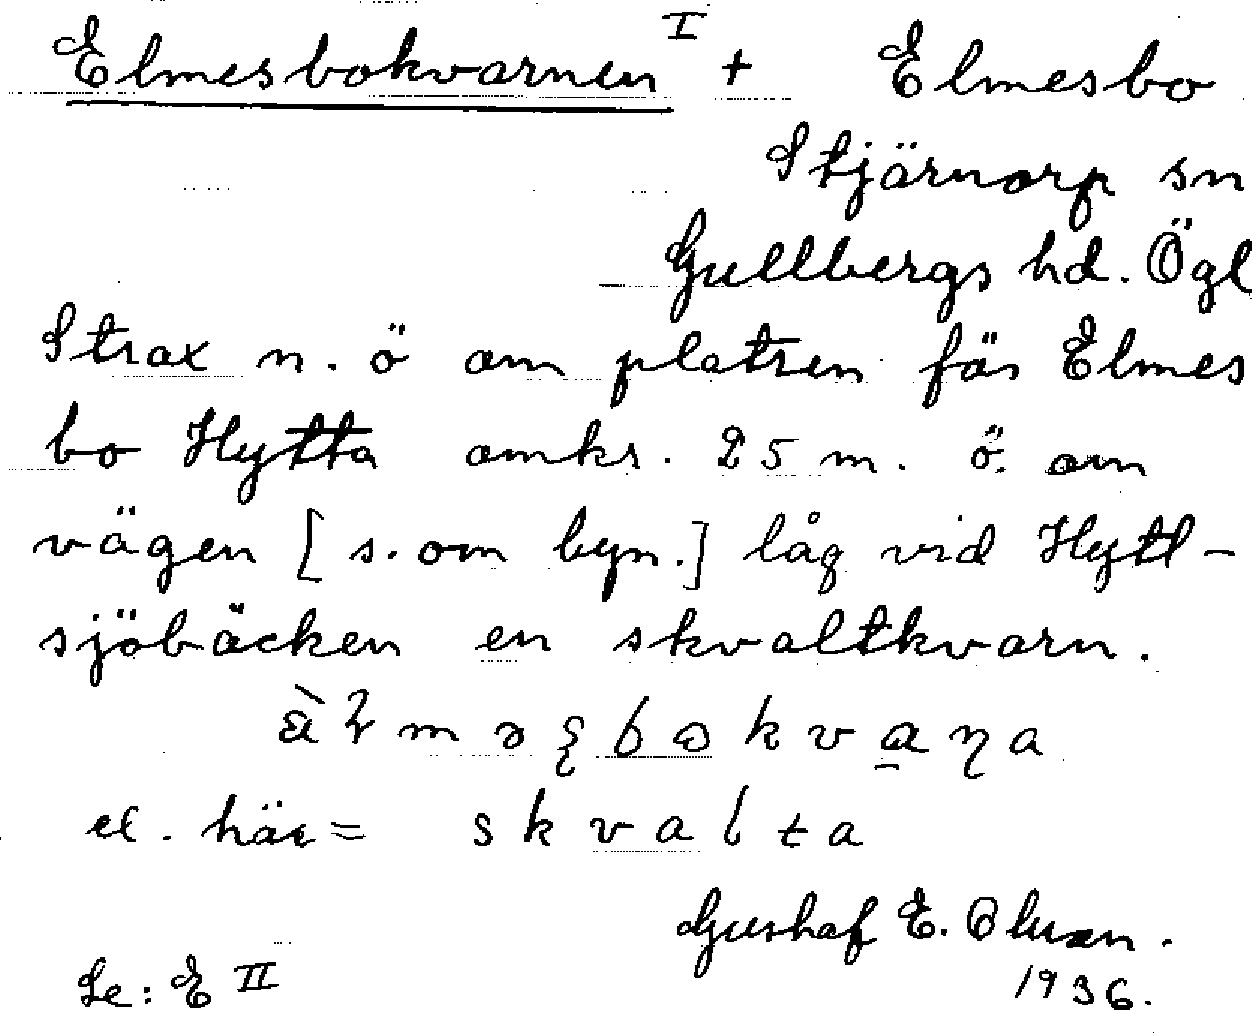 Elmesbokvarnen I + Elmesbo
Stjärnorp sn
Gullbergs hd. Ögl
Strax n. ö om platsen för Elmes
bo Hytta omkr. 25 m. ö. om
vägen [s. om byn.] låg vid Hytt-
sjöbäcken en skvaltkvarn.
el. här = skvalta
Gustaf E. Olsson.
Se: E II
1936.